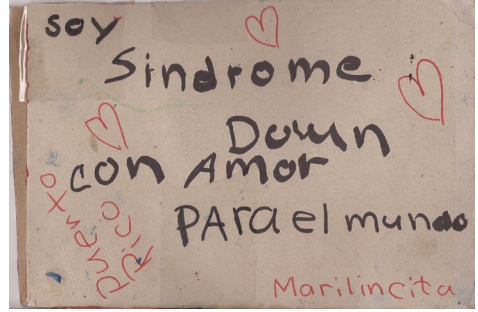 soy
Sindrome
Down
con Amor
PARA el mundo
Puerto
Rico
Marilincita